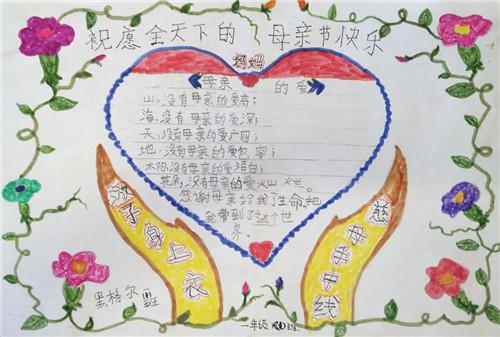 祝愿全天下的 母亲节快乐
妈妈
母亲 的爱
山,没有母亲的爱高;
海,没有母亲的爱深;
天,没有母亲的爱广阔;
地,没有母亲的爱包容;
太阳,没有母亲的爱
花,没有母亲的爱
感谢母亲给我了生命,把
我带到了这个世
界。
游子身上衣
慈母手中线
黑格尔 班
一年级